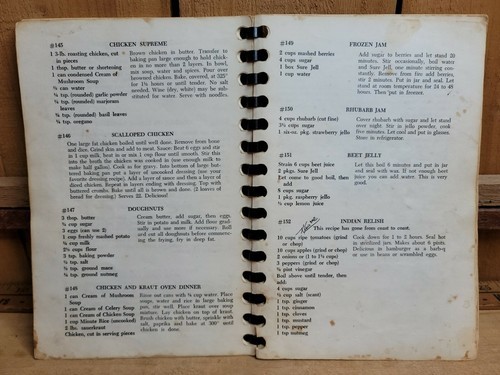 #145 CHICKEN SUPREME
1 3-lb. roasting chicken, cut
in pieces
1 tbsp. butter or shortening
1 can condensed Cream of
Mushroom Soup
¾ can water
¼ tsp. (rounded) garlic powder
¼ tsp. (rounded) marjoram
leaves
¼ tsp. (rounded) basil leaves
¼ tsp. oregano
Brown chicken in butter. Transfer to
baking pan large enough to hold chick-
en in no more than 2 layers. In bowl,
mix soup, water and spices. Pour over
browned chicken. Bake, covered, at 325°
for 1½ hours or until tender. No salt
needed. Wine (dry, white) may be sub-
stituted for water. Serve with noodles.
#146 SCALLOPED CHICKEN
One large fat chicken boiled until well done. Remove from bone
and dice. Grind skin and add to meat. Scatter 6 eggs and stir
in 1 cup milk, beat in or mix 1 cup flour until smooth. Stir this
into the broth the chicken was cooked in (use enough milk to
make half gallon). Cook as for gravy. Into bottom of large but-
tered baking pan put a layer of uncooked dressing (use your
favorite dressing recipe). Add a layer of sauce and then a layer of
diced chicken. Repeat in layers ending with dressing. Top with
buttered crumbs. Bake until all is brown and done. (2 loaves of
bread for dressing.) Serves 25. Delicious!
#147 DOUGHNUTS
3 tbsp. butter
¾ cup sugar
3 eggs (can use 2)
1 cup freshly mashed potato
¾ cup milk
2¾ cups flour
3 tsp. baking powder
½ tsp. salt
½ tsp. ground mace
½ tsp. ground nutmeg
Cream butter, add sugar, then eggs.
Stir in potato and milk. Add flour grad-
ually and use more if necessary. Roll
out all doughnuts before commencing
the frying, fry in deep fat.
#148 CHICKEN AND KRAUT OVEN DINNER
1 can Cream of Mushroom
Soup
1 can Cream of Celery Soup
1 can Cream of Chicken Soup
1 cup Minute Rice (uncooked)
2 lbs. sauerkraut
Chicken, cut in serving pieces
Rinse out cans with ¾ cup water. Place
soups, water and rice in large baking
pan, stir well. Place kraut over soup
mixture. Lay chicken on top of kraut.
Brush chicken with butter, sprinkle with
salt, paprika and bake at 300° until
chicken is done.
#149 FROZEN JAM
2 cups mashed berries
4 cups sugar
1 box Sure Jell
1 cup water
Add sugar to berries and let stand 20
minutes. Stir occasionally, heat water
and Sure Jell, one minute stirring con-
stantly. Remove from fire add berries,
stir 2 minutes. Put in jar and seal. Let
stand at room temperature for 24 to 48
hours. Then put in freezer.
#150 RHUBARB JAM
4 cups rhubarb (cut fine)
3½ cups sugar
1 six-oz. pkg. strawberry jello
Cover rhubarb with sugar and let stand
over night. Stir in jello powder, cook
five minutes. Let cool and put in glasses.
Store in refrigerator.
#151 BEET JELLY
Strain 6 cups beet juice
2 pkgs. Sure Jell
Let come to good boil, then
add
8 cups sugar
1 pkg. raspberry jello
½ cup lemon juice
Let this boil 6 minutes and put in jar
and seal with wax. If not enough beet
juice you can add water. This is very
good.
#152 INDIAN RELISH
This recipe has gone from coast to coast.
10 cups ripe tomatoes (grind
or chop)
10 cups apples (grind or chop)
2 onions (1 to 1½ cups)
3 peppers (grind or chop)
¾ pint vinegar
Boil above until tender, then
add:
4 cups sugar
½ cup salt (scant)
1 tsp. ginger
1 tsp. cinnamon
1 tsp. cloves
1 tsp. mustard
1 tsp. pepper
1 tsp nutmeg
Cook down for 1 to 2 hours. Seal hot
in sterilized jars. Makes about 6 pints.
Delicious in hamburger as a barbeq
or use in beans or scrambled eggs.